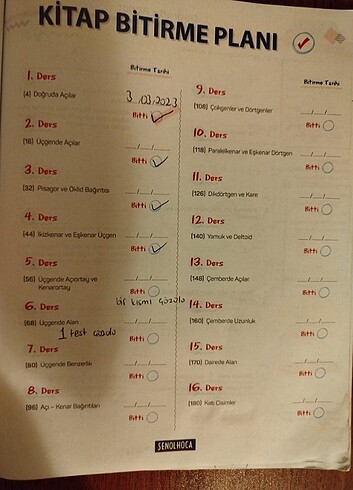 KİTAP BİTİRME PLANI
Bitirme Tarihi
1. Ders
(4) Doğruda Açılar
3 /03/2023
Bitti
2. Ders
(18) Üçgende Açılar
__/__/__
Bitti
3. Ders
(32) Pisagor ve Öklid Bağıntısı
__/__/__
Bitti
4. Ders
(44) İkizkenar ve Eşkenar Üçgen
__/__/__
Bitti
5. Ders
(56) Üçgende Açıortay ve
Kenarortay
__/__/__
Bitti
bir kısmı çözüldü
6. Ders
(68) Üçgende Alan
__/__/__
1 test çözdü
Bitti
7. Ders
(80) Üçgende Benzerlik
__/__/__
Bitti
8. Ders
(96) Açı - Kenar Bağıntıları
__/__/__
Bitti
Bitirme Tarihi
9. Ders
(106) Çokgenler ve Dörtgenler
__/__/__
Bitti
10. Ders
(118) Paralelkenar ve Eşkenar Dörtgen
__/__/__
Bitti
11. Ders
(126) Dikdörtgen ve Kare
__/__/__
Bitti
12. Ders
(140) Yamuk ve Deltoid
__/__/__
Bitti
13. Ders
(148) Çemberde Açılar
__/__/__
Bitti
14. Ders
(160) Çemberde Uzunluk
__/__/__
Bitti
15. Ders
(170) Dairede Alan
__/__/__
Bitti
16. Ders
(180) Katı Cisimler
__/__/__
Bitti
SENOLHOCA